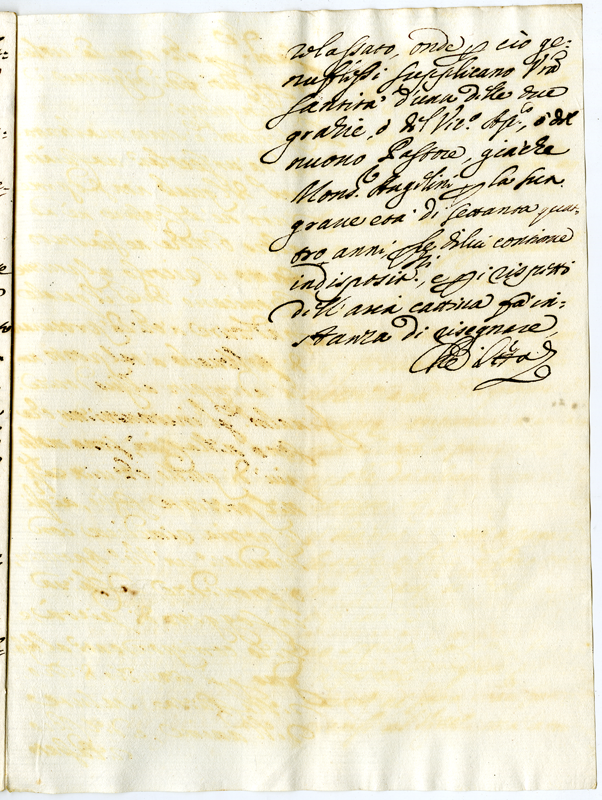 rilassato, onde p ciò ge-
nuflessi supplicano Vrā
Santità d'una delle due
grazie, ò del Vic.º Ap.º, ò del
nuovo Pastore, giache
Mons.r Angelini p la sua
grave età di settanta quat-
tro anni, p le di lui continue
indisposit.ni, e p i rispetti
dell'aria cattiva fa in-
stanza di risegnare
Che &